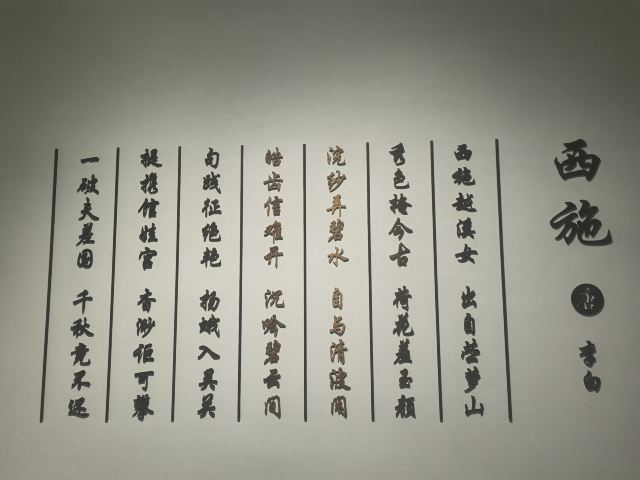 西施
唐
李白
西施越溪女 出自苎萝山
秀色掩今古 荷花羞玉颜
浣纱弄碧水 自与清波闲
皓齿信难开 沉吟碧云间
勾践征绝艳 扬蛾入吴关
提携馆娃宫 杳渺讵可攀
一破夫差国 千秋竟不还